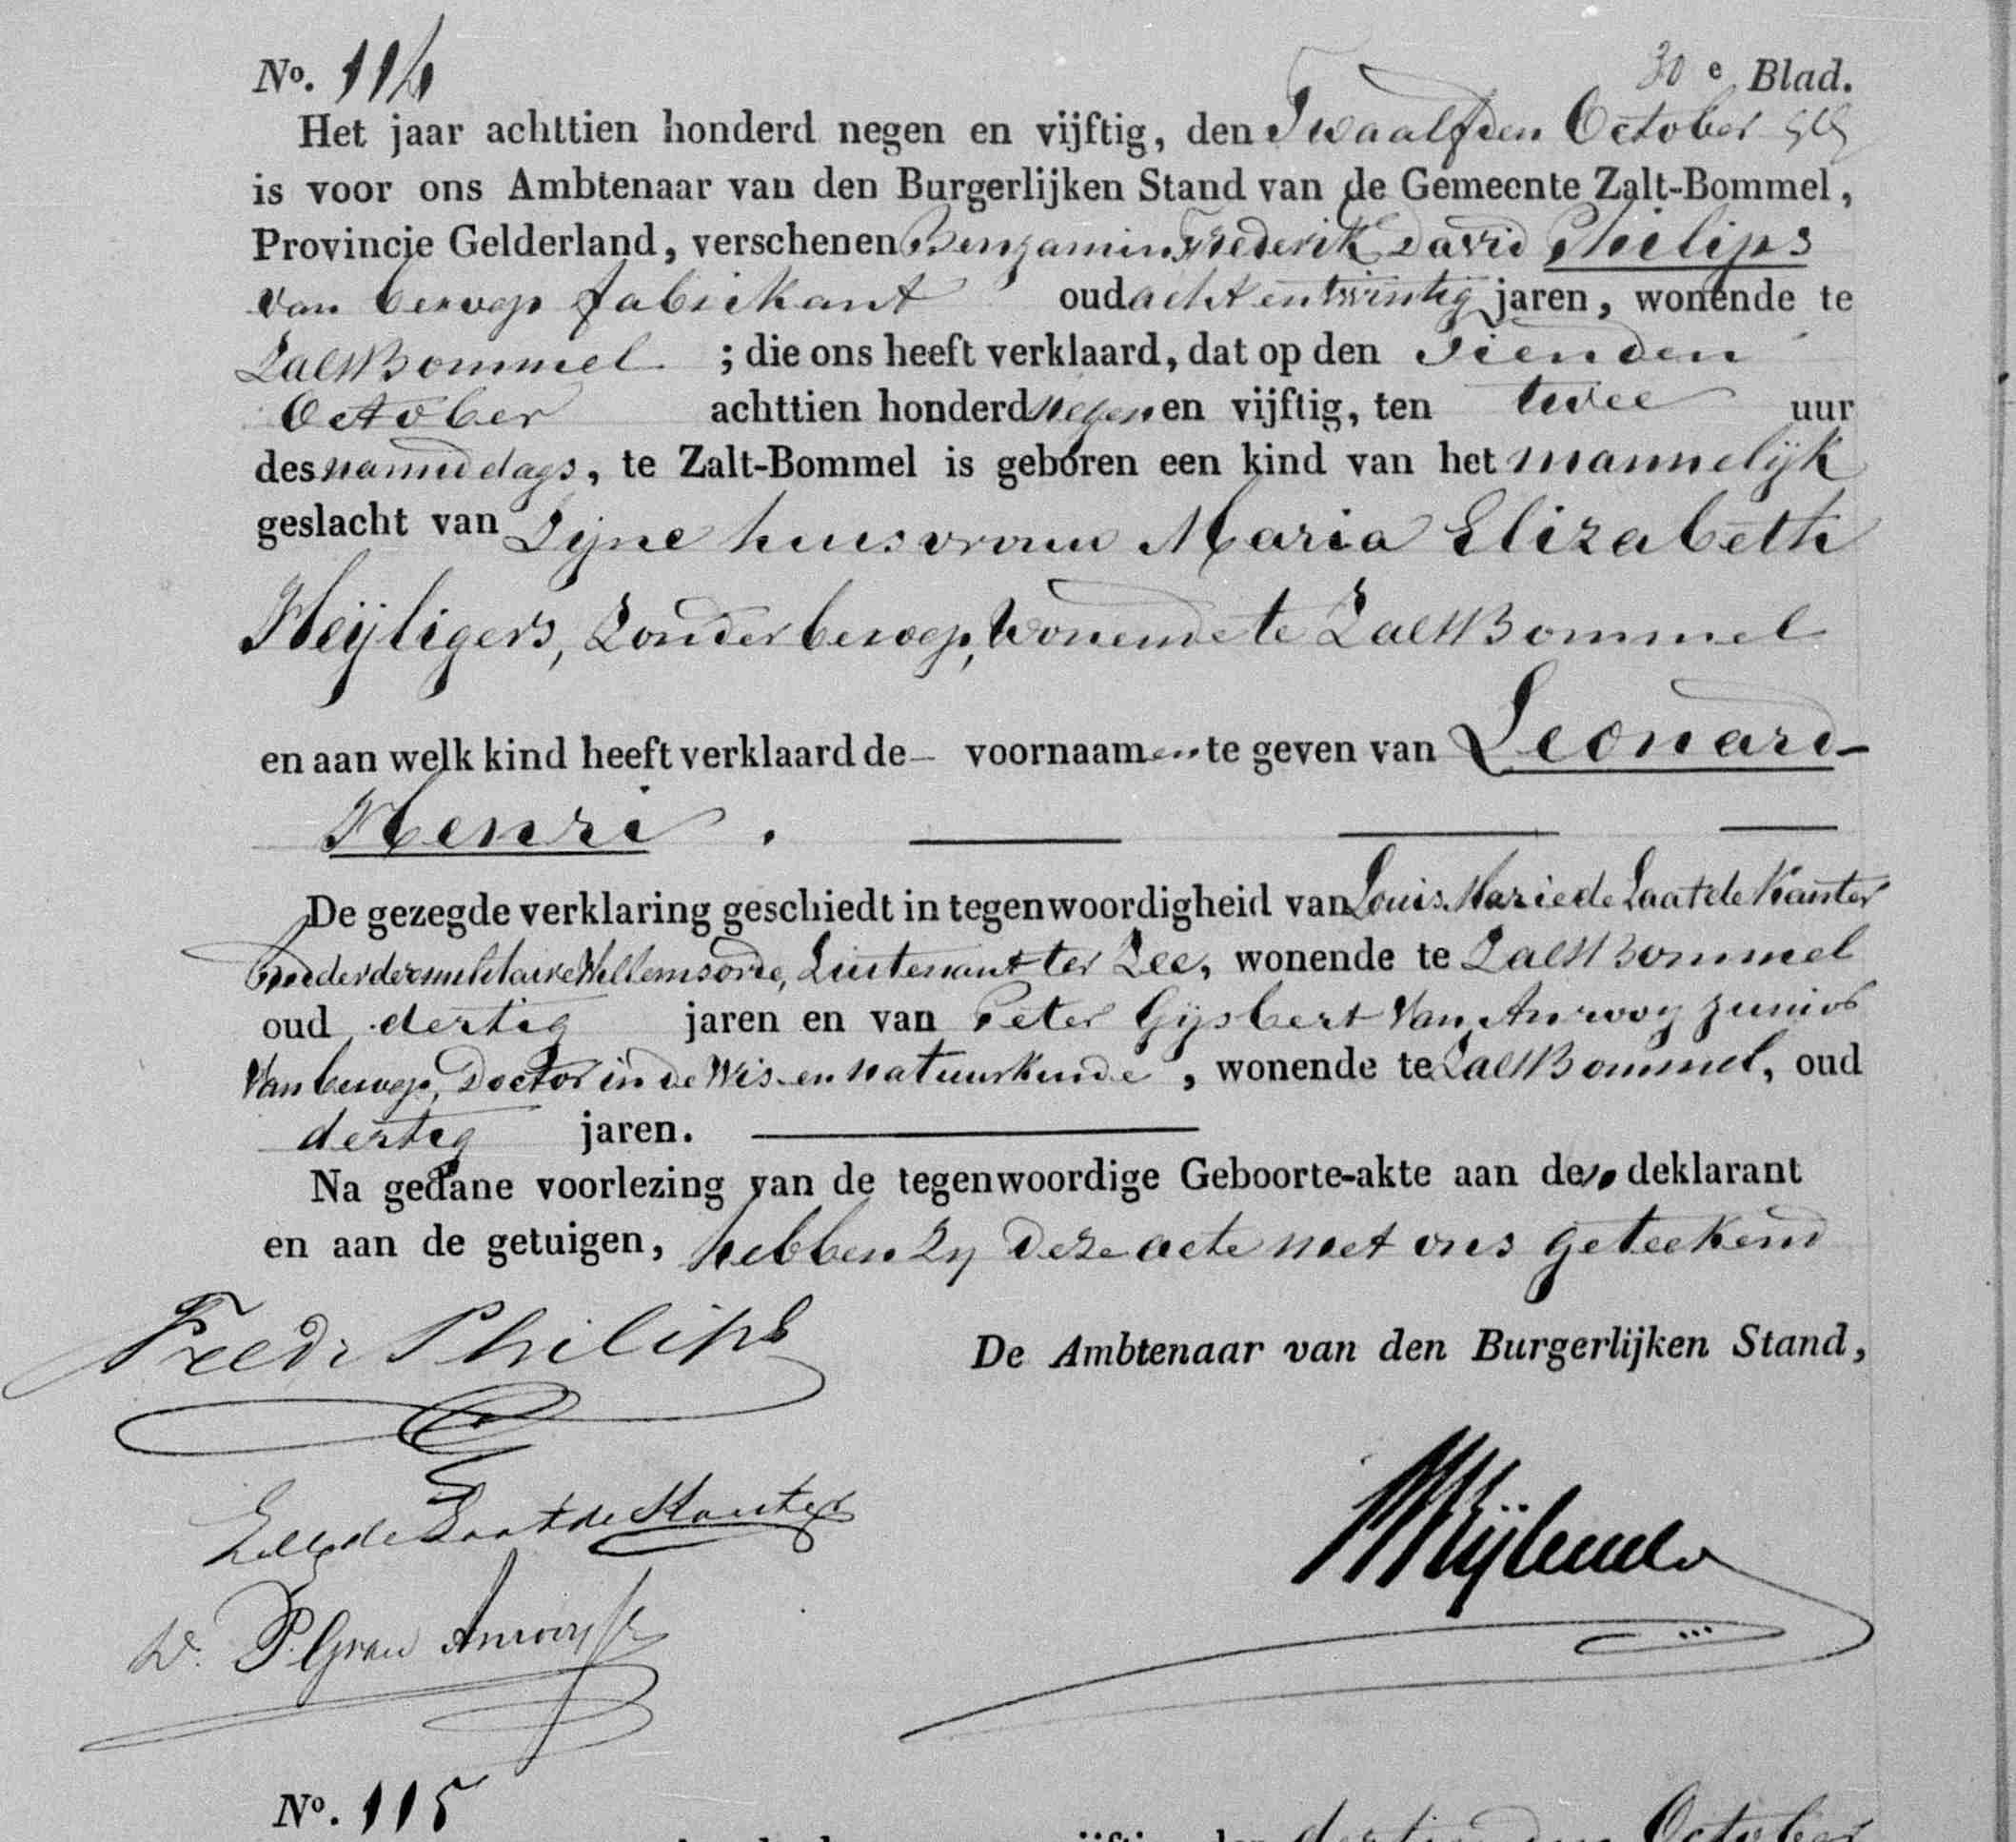 No. 114
30 e Blad.
Het jaar achttien honderd negen en vijftig, den Twaalfden October
is voor ons Ambtenaar van den Burgerlijken Stand van de Gemeente Zalt-Bommel,
Provincie Gelderland, verschenen Benjamin Frederik David Philips
van beroep fabrikant oud acht en twintig jaren, wonende te
ZaltBommel ; die ons heeft verklaard, dat op den Tienden
October achttien honderd negen en vijftig, ten twee uur
des namiddags, te Zalt-Bommel is geboren een kind van het mannelijk
geslacht van Zijne huisvrouw Maria Elizabeth
Heyligers, Zonder beroep, Wonende te ZaltBommel
en aan welk kind heeft verklaard de – voornaamen te geven van Leonard-
Henri.
De gezegde verklaring geschiedt in tegenwoordigheid van Louis Marie de Laat de Kanter
der militaire Willemsorde, Luitenant ter Zee, wonende te ZaltBommel
oud dertig jaren en van Peter Gijsbert Van Anrooy junior
Van beroep, Doctor in de Wis- en natuurkunde, wonende te ZaltBommel, oud
dertig jaren.
Na gedane voorlezing van de tegenwoordige Geboorte-akte aan den deklarant
en aan de getuigen, hebben Zy deze acte met ons geteekend
Fredr Philips
De Ambtenaar van den Burgerlijken Stand,
de Laat de Kanter
Dr. P. G van Anrooy Jr
No. 115
October